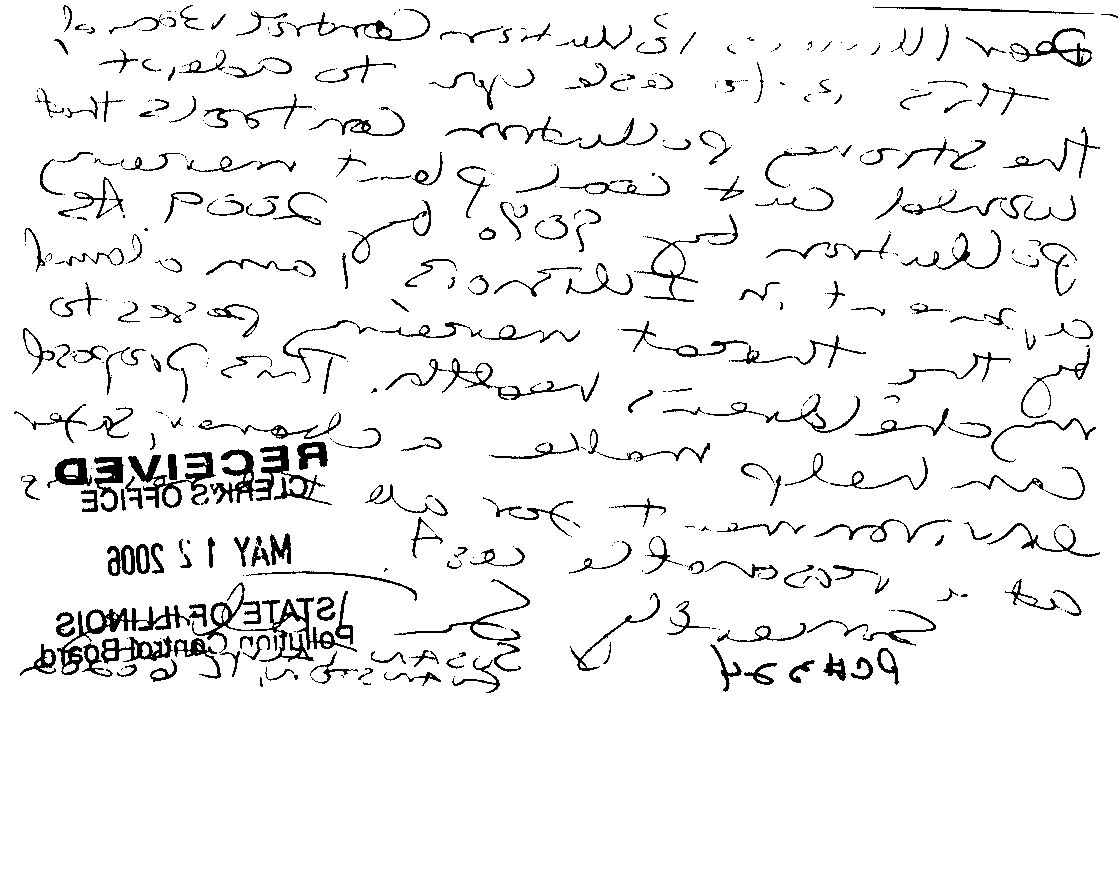 Dear Illinois Pollution Control Board,
This is to ask you to adopt
the strong pollution controls that
would cut coal plant mercury
pollution by 90% by 2009. As
a parent in Illinois I am alarmed
by the threat mercury poses to
my children's health. This proposal
can help make a cleaner, safer
environment for all
at a reasonable cost.
Sincerely,
Susan
Evanston, IL
PC#324
RECEIVED
CLERK'S OFFICE
MAY 12 2006
STATE OF ILLINOIS
Pollution Control Board